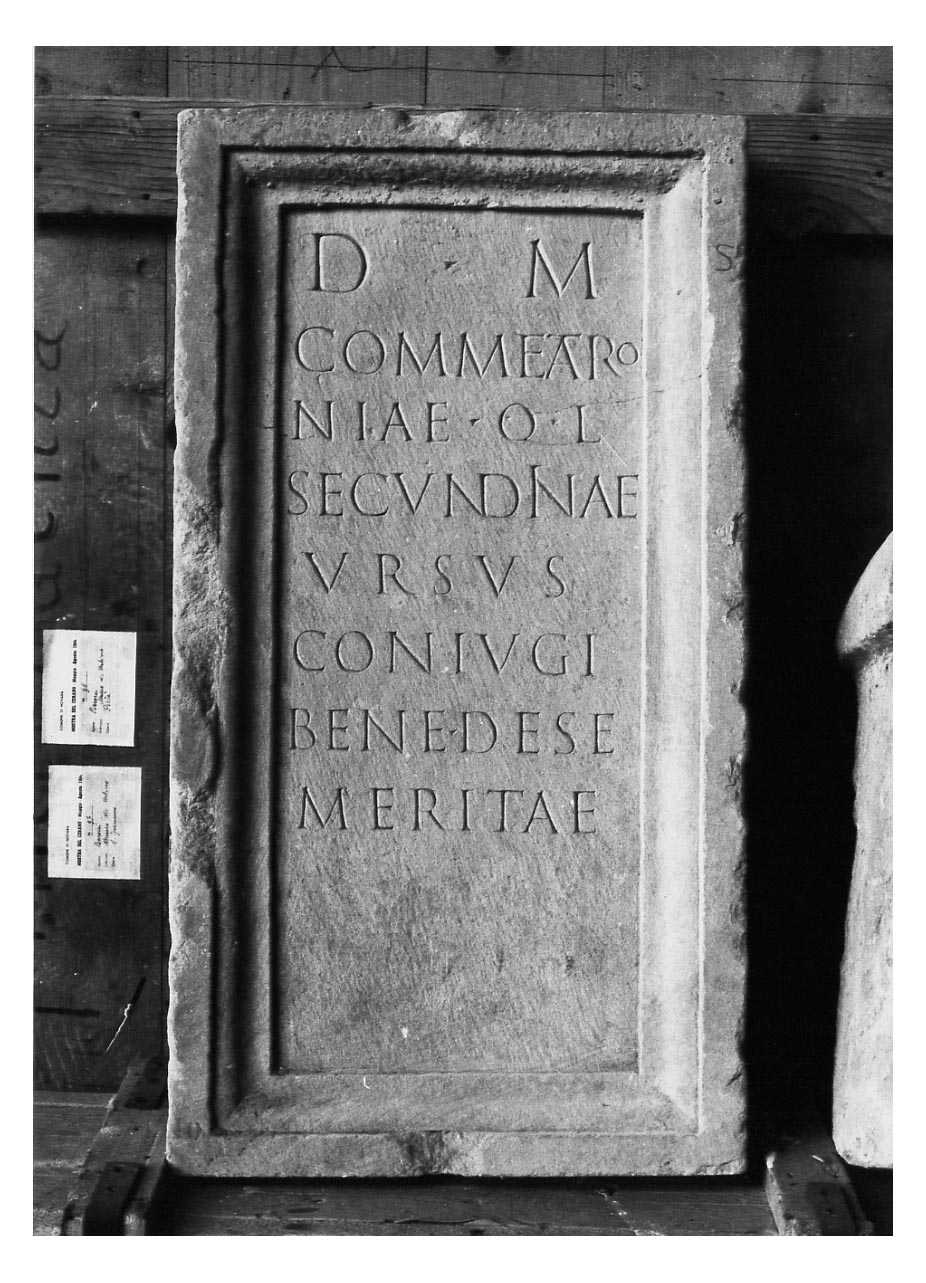 D · M S
COMMEATRO
NIAE · O · L
SECVNDINAE
VRSVS
CONIVGI
BENE·DE SE
MERITAE
COMUNE DI NOVARA
MOSTRA DEL CERANO - Maggio - Agosto 1964
COMUNE DI NOVARA
MOSTRA DEL CERANO - Maggio - Agosto 1964